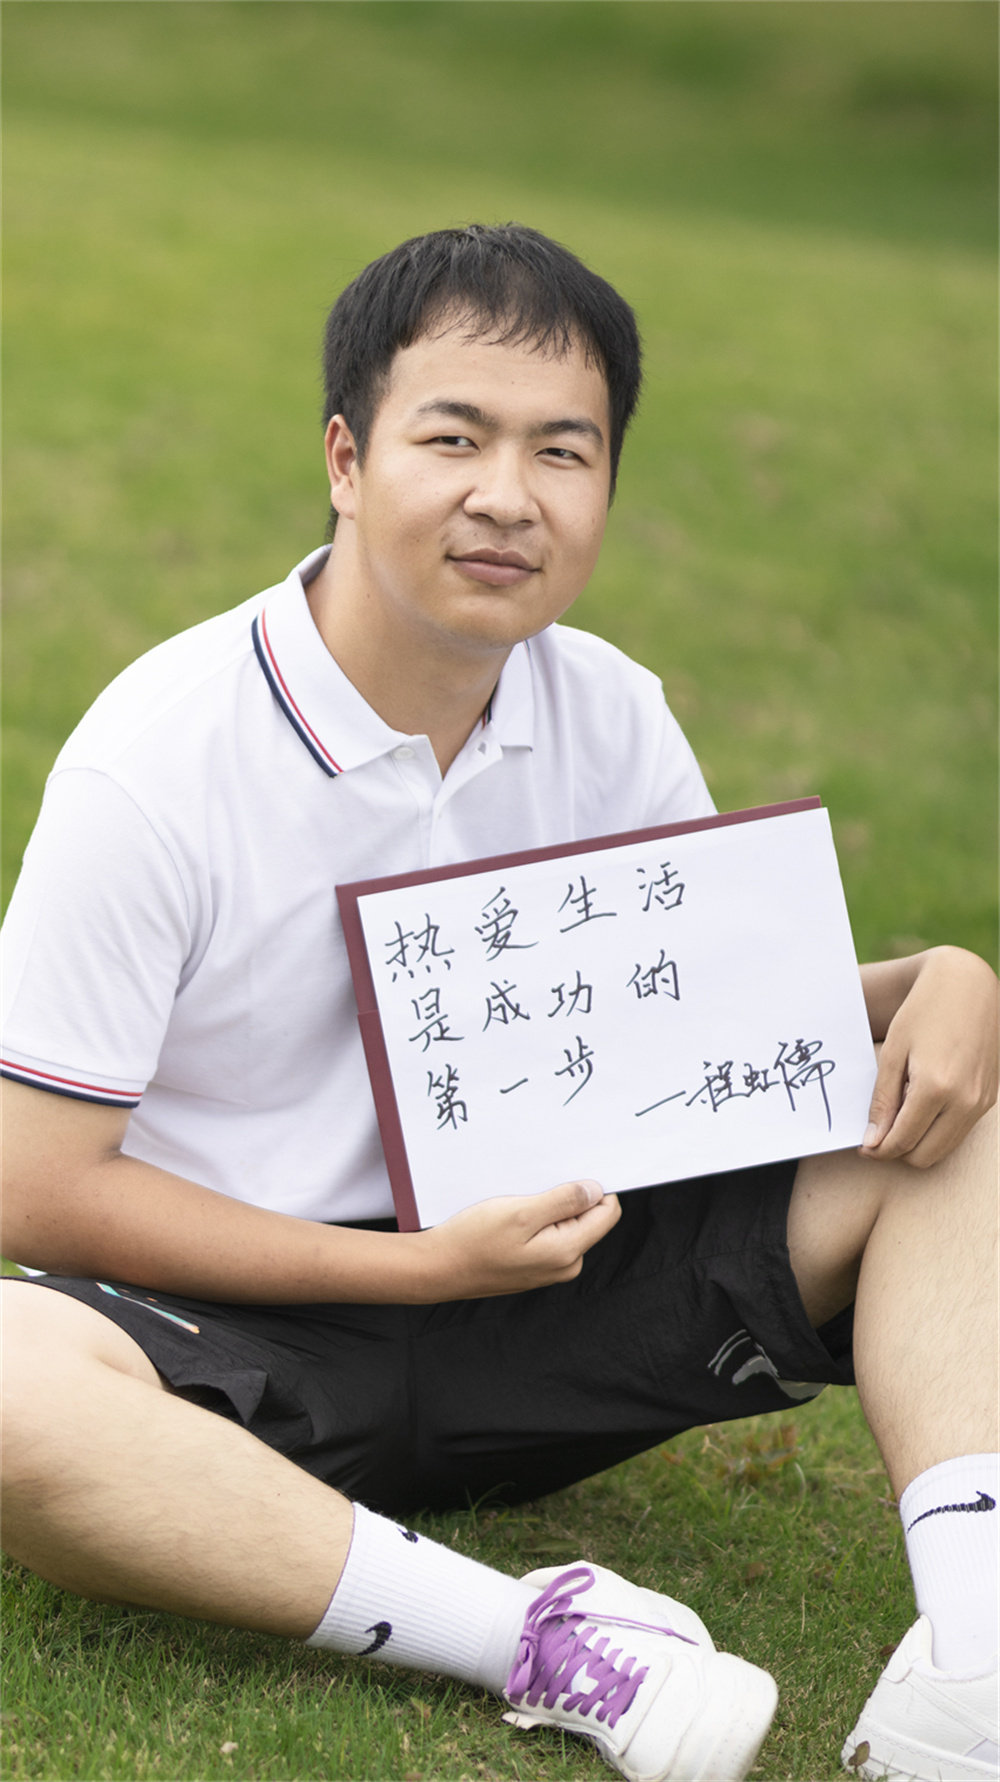 热爱生活
是成功的
第一步
—程虹儒